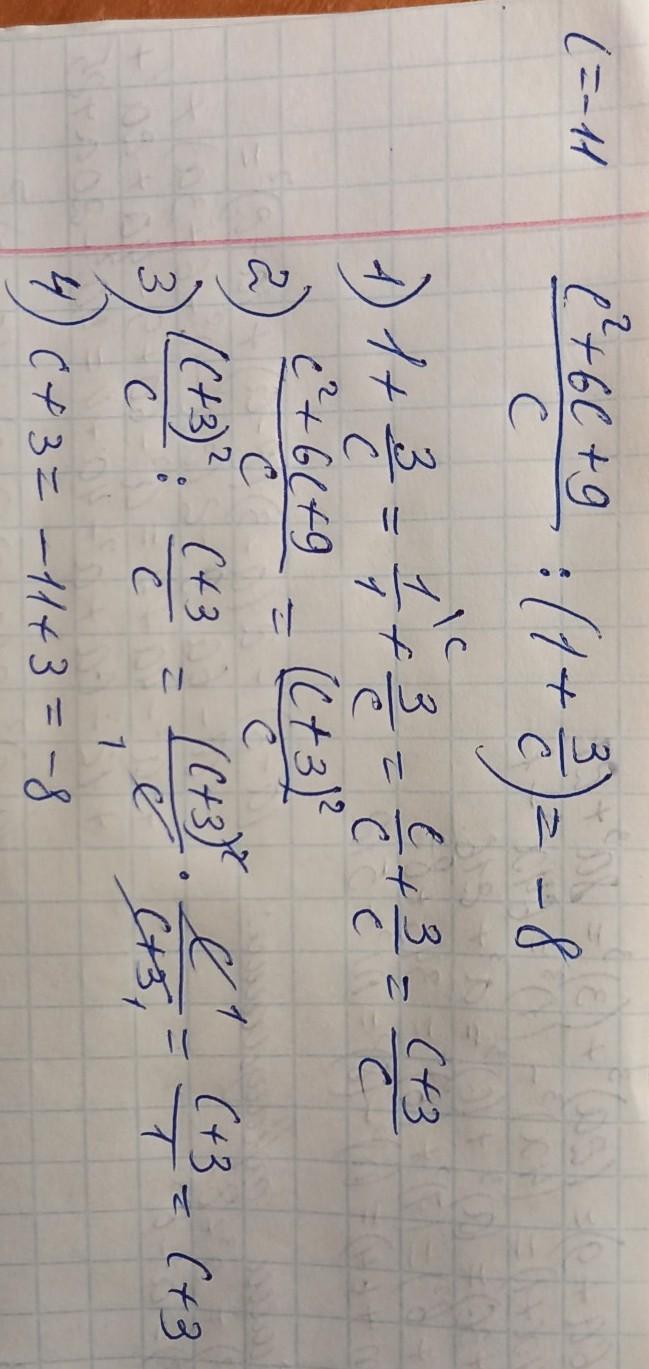 c=-11
(c²+6c+9)/c : (1 + 3/c) = -8
1) 1 + 3/c = 1/1 \c + 3/c = c/c + 3/c = (c+3)/c
2) (c²+6c+9)/c = (c+3)²/c
3) (c+3)²/c : (c+3)/c = (c+3)²/c 1 · c 1/(c+3) 1 = (c+3)/1 = c+3
4) c+3 = -11+3 = -8